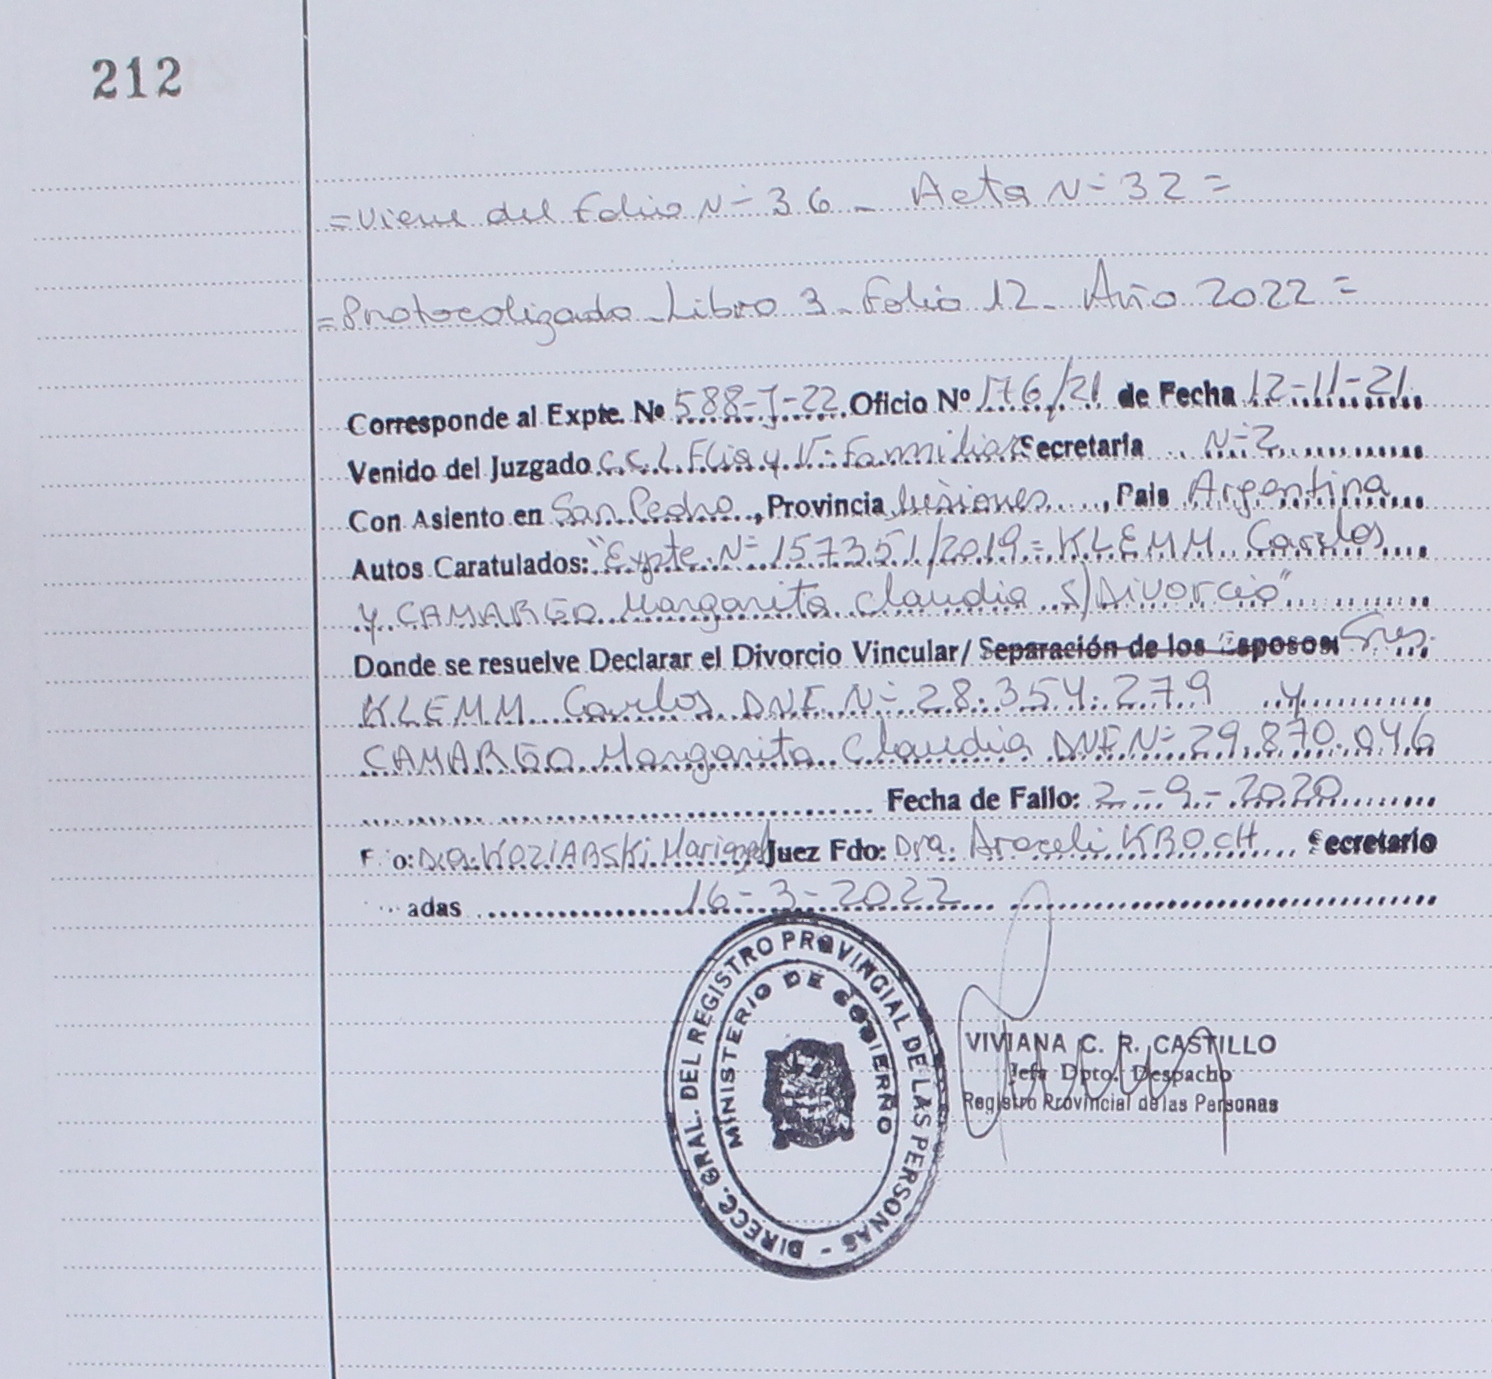 212
=Viene del Folio N- 36 _ Acta N- 32 =
=Protocolizado_Libro 3_Folio 12_ Año 2022 =
Corresponde al Expte. Nº 588-J-22. Oficio Nº 176/21 de Fecha 12-11-21
Venido del Juzgado C.C.L. Flia y V. Familiar Secretaria N-2
Con Asiento en San Pedro, Provincia Misiones, Pais Argentina
Autos Caratulados: "Expte. N- 157351/2019 = KLEMM Carlos
y CAMARGO Margarita Claudia S/ Divorcio"
Donde se resuelve Declarar el Divorcio Vincular/ Separación de los Esposos: Sres.
KLEMM Carlos DNI N- 28.354.279 y
CAMARGO Margarita Claudia DNI N- 29.870.046
Fecha de Fallo: 2-9-2020
F o: Dra. KOZIARSKI Mariangel Juez Fdo: Dra. Araceli KROCH Secretario
adas 16-3-2022
DIRECC. GRAL. DEL REGISTRO PROVINCIAL DE LAS PERSONAS -
MINISTERIO DE GOBIERNO
VIVIANA C. R. CASTILLO
Jefa Dpto. Despacho
Registro Provincial de las Personas